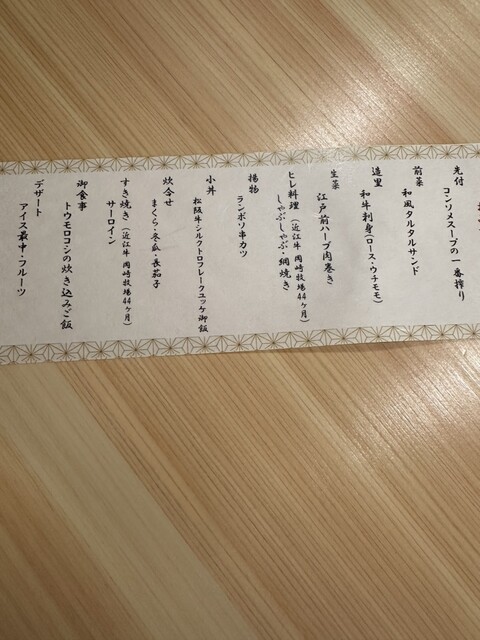 先付
コンソメスープの一番搾り
前菜
和風タルタルサンド
造里
和牛刺身(ロース・ウチモモ)
生菜
江戸前ハーブ肉巻き
ヒレ料理(近江牛 岡崎牧場44ヶ月)
しゃぶしゃぶ・網焼き
揚物
ランボソ串カツ
小丼
松阪牛シルクトロフレークユッケ御飯
炊合せ
まくら・冬瓜・長茄子
すき焼き(近江牛 岡崎牧場44ヶ月)
サーロイン
御食事
トウモロコシの炊き込みご飯
デザート
アイス最中・フルーツ